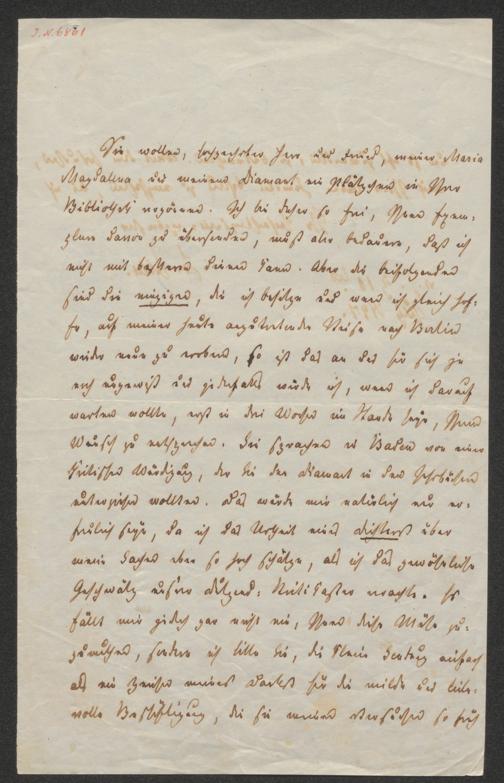 J.N. 6861
Sie wollen, hochgeehrter Herr und Freund, meiner Maria
Magdalena und meinem Diamant ein Plätzchen in Ihrer
Bibliothek vergönnen. Ich bin daher so frei, Ihnen Exem-
plare davon zu übersenden, muß aber bedauern, daß ich
nicht mit besseren dienen kann. Aber die beifolgenden
sind die einzigen, die ich besitze und wenn ich gleich hof-
fe, auf meiner heute anzutretenden Reise nach Berlin
wieder neue zu erobern, so ist das an und für sich ja
noch ungewiß und jedenfalls würde ich, wenn ich darauf
warten wollte, erst in drei Wochen im Stande seyn, Ihrem
Wunsch zu entsprechen. Sie sprachen in Baden von einer
kritischen Würdigung, der Sie den Diamant in den Jahrbüchern
unterziehen wollten. Das würde mir natürlich nur er-
freulich seyn, da ich das Urtheil eines Dichters über
meine Sachen eben so hoch schätze, als ich das gewöhnliche
Geschwätz unserer Kritikaster verachte. Es
fällt mir jedoch gar nicht ein, Ihnen diese Mühe zu-
zumuthen, sondern ich bitte Sie, die kleine Sendung einfach
als ein Zeichen meines Dankes für die milde und liebe-
volle Beschäftigung, die Sie meinen Versuchen so früh